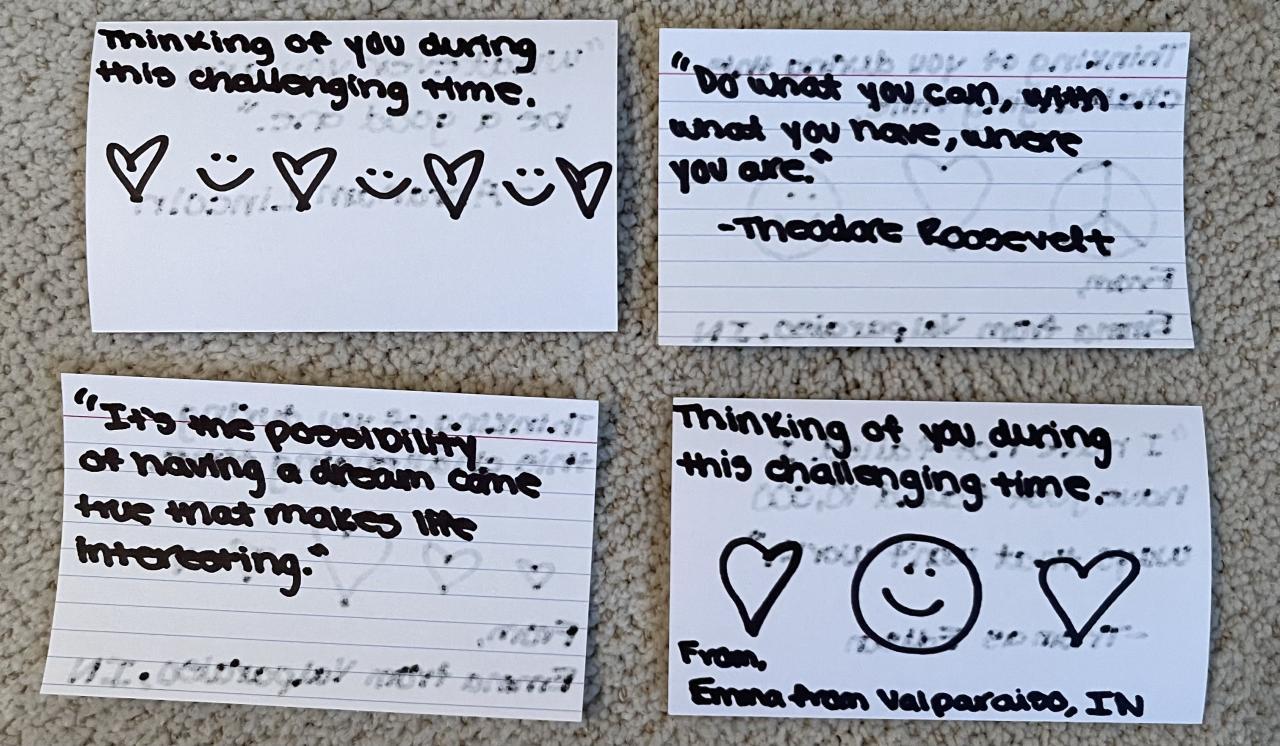 Thinking of you during
this challenging time.
"Do what you can, with
what you have, where
you are."
-Theodore Roosevelt
"It's the possibility
of having a dream come
true that makes life
interesting."
Thinking of you during
this challenging time.
From,
Emma from Valparaiso, IN